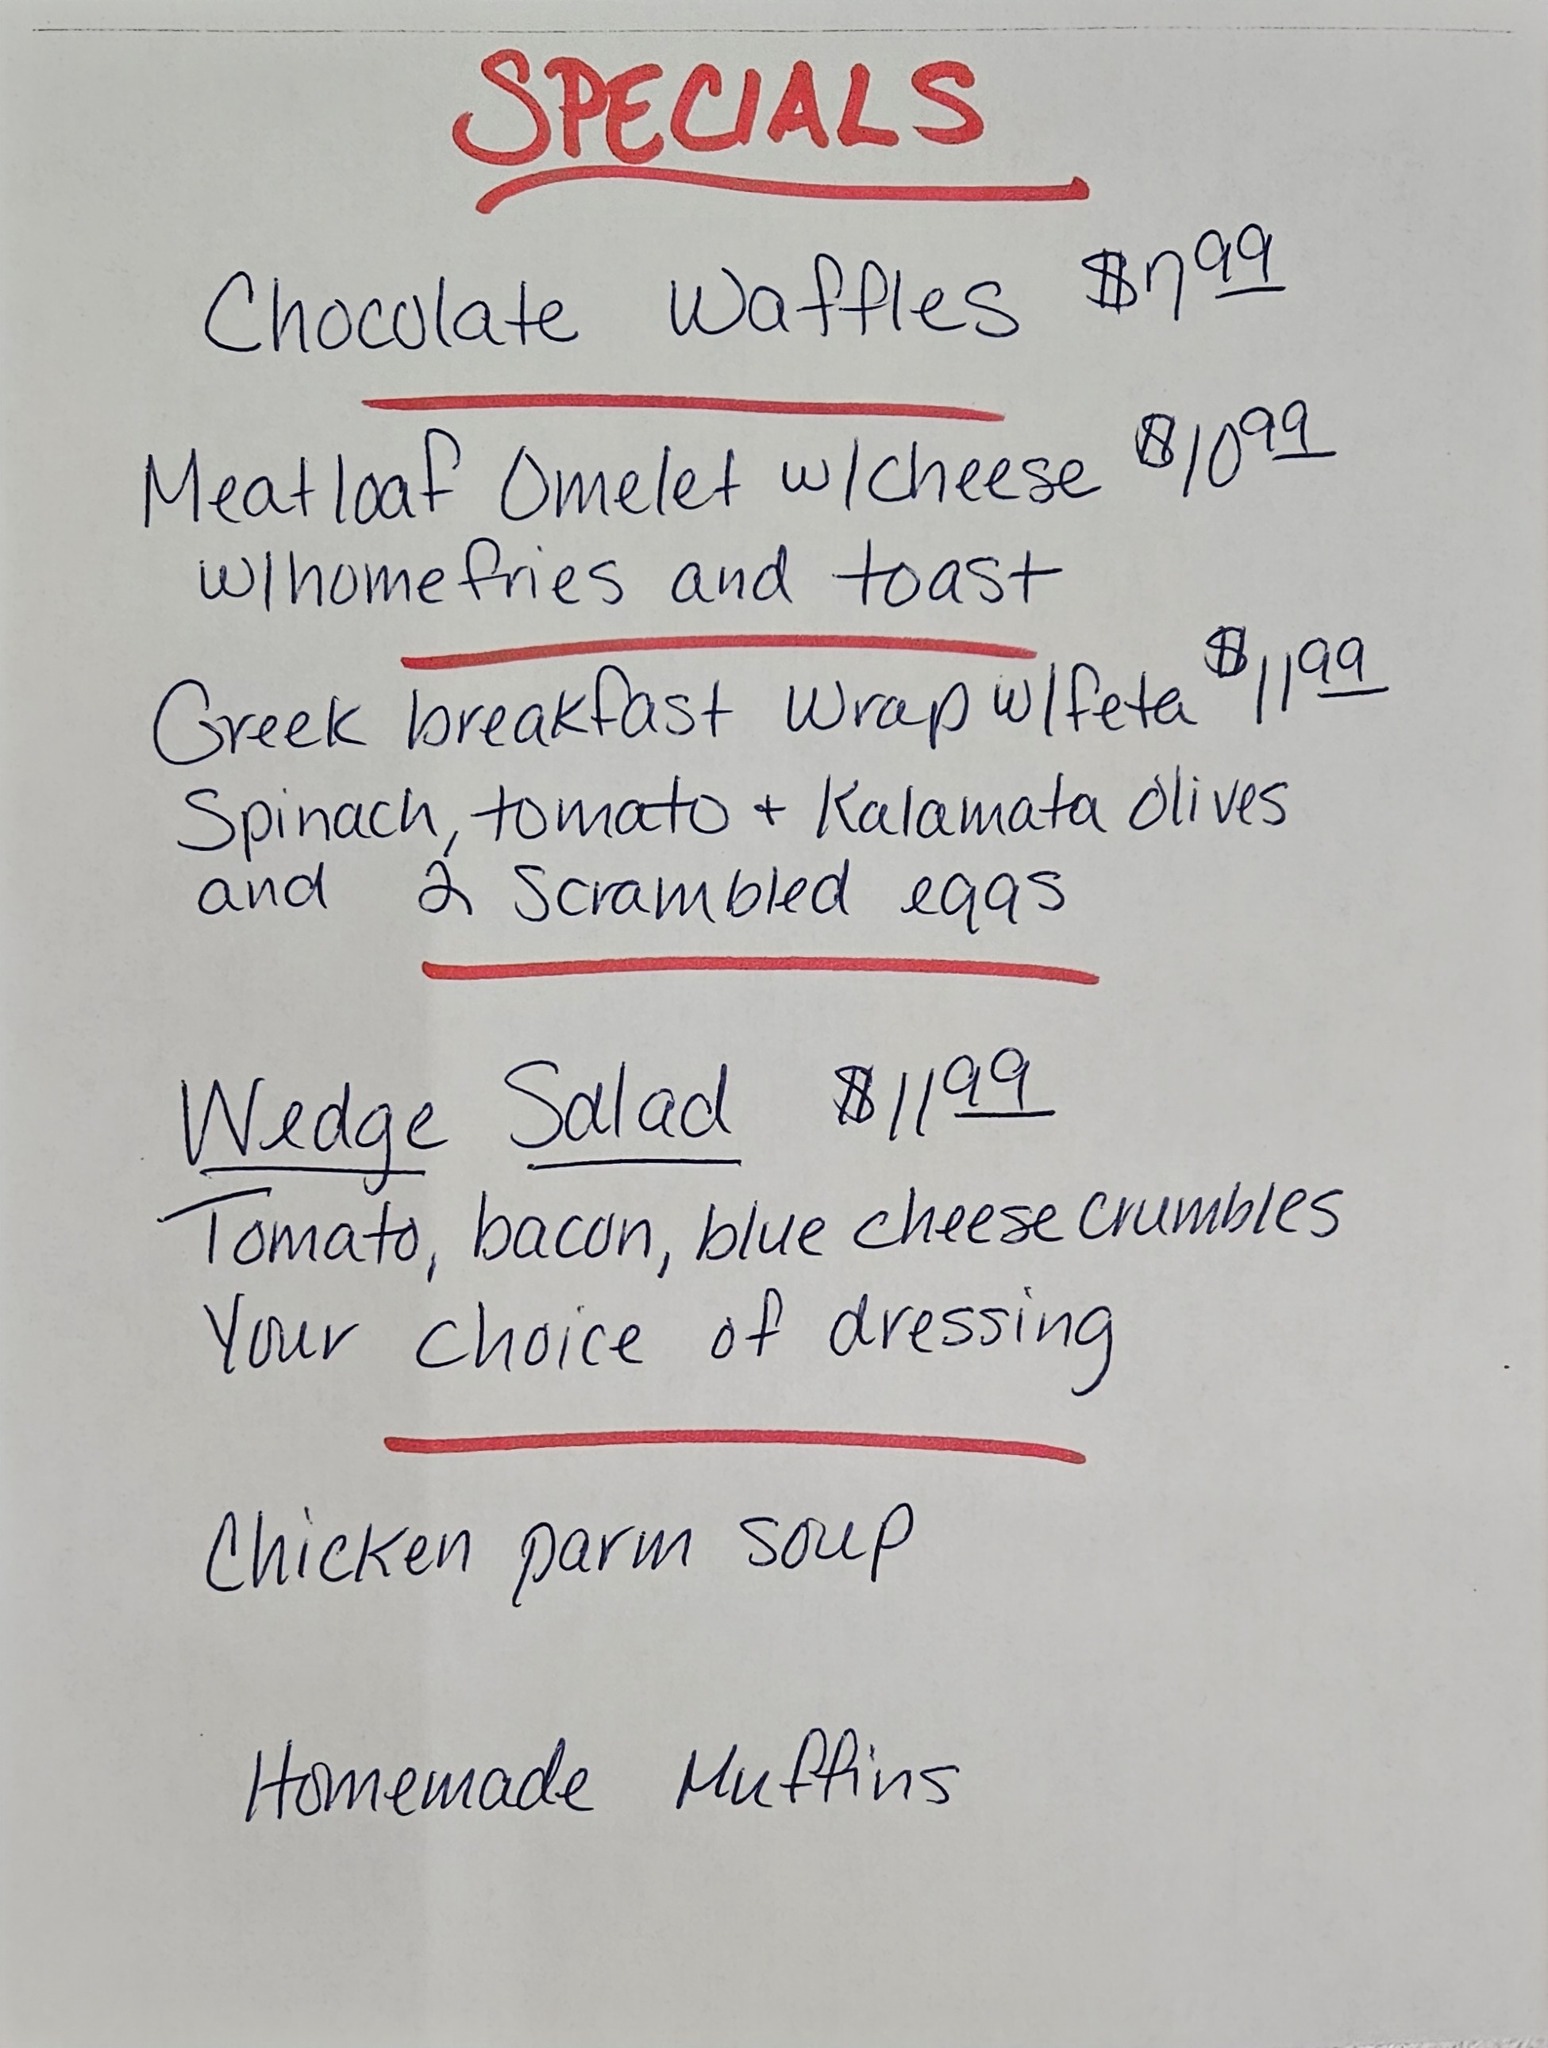 SPECIALS
Chocolate Waffles $7.99
Meatloaf Omelet w/cheese $10.99
w/homefries and toast
Greek breakfast Wrap w/feta $11.99
Spinach, tomato + Kalamata Olives
and 2 Scrambled eggs
Wedge Salad $11.99
Tomato, bacon, blue cheese crumbles
Your choice of dressing
Chicken parm soup
Homemade Muffins